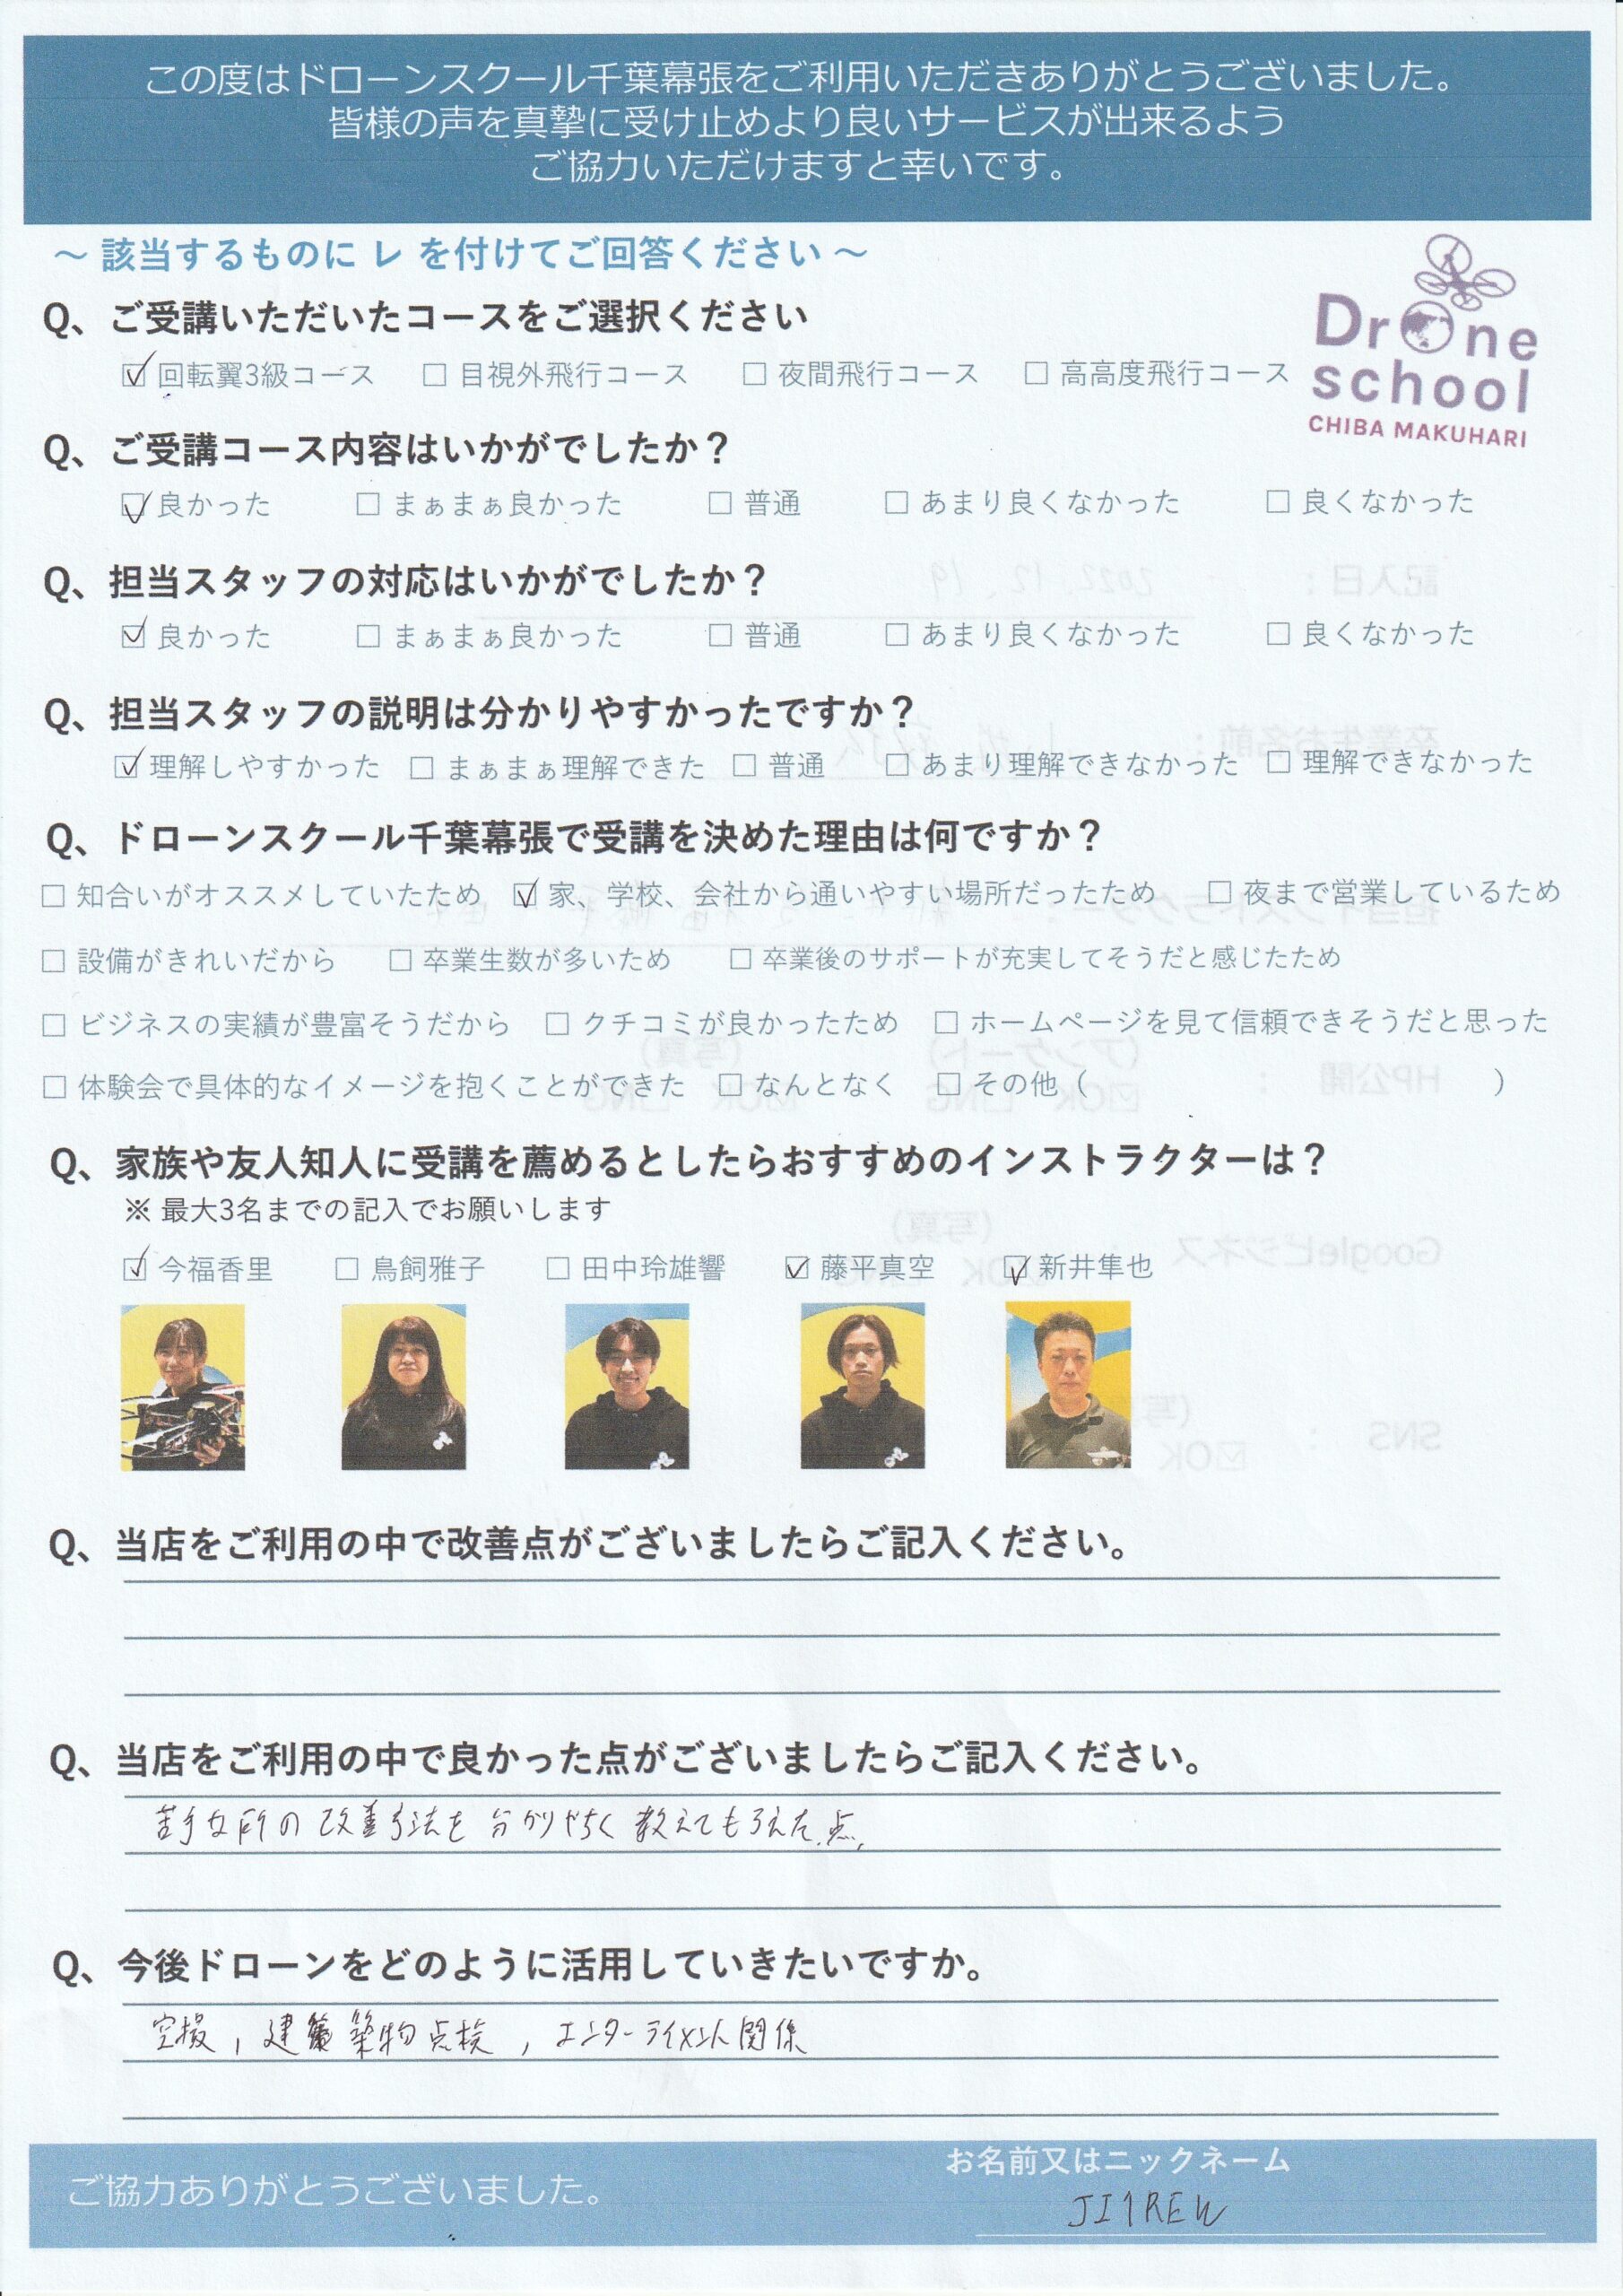 この度はドローンスクール千葉幕張をご利用いただきありがとうございました。
皆様の声を真摯に受け止めより良いサービスが出来るよう
ご協力いただけますと幸いです。
～ 該当するものに レ を付けてご回答ください ～
Drone
school
CHIBA MAKUHARI
Q、ご受講いただいたコースをご選択ください
☑ 回転翼3級コース □ 目視外飛行コース □ 夜間飛行コース □ 高高度飛行コース
Q、ご受講コース内容はいかがでしたか？
☑ 良かった □ まぁまぁ良かった □ 普通 □ あまり良くなかった □ 良くなかった
Q、担当スタッフの対応はいかがでしたか？
☑ 良かった □ まぁまぁ良かった □ 普通 □ あまり良くなかった □ 良くなかった
Q、担当スタッフの説明は分かりやすかったですか？
☑ 理解しやすかった □ まぁまぁ理解できた □ 普通 □ あまり理解できなかった □ 理解できなかった
Q、ドローンスクール千葉幕張で受講を決めた理由は何ですか？
□ 知合いがオススメしていたため ☑ 家、学校、会社から通いやすい場所だったため □ 夜まで営業しているため
□ 設備がきれいだから □ 卒業生数が多いため □ 卒業後のサポートが充実してそうだと感じたため
□ ビジネスの実績が豊富そうだから □ クチコミが良かったため □ ホームページを見て信頼できそうだと思った
□ 体験会で具体的なイメージを抱くことができた □ なんとなく □ その他（ ）
Q、家族や友人知人に受講を薦めるとしたらおすすめのインストラクターは？
※ 最大3名までの記入でお願いします
☑ 今福香里 □ 鳥飼雅子 □ 田中玲雄響 ☑ 藤平真空 ☑ 新井隼也
Q、当店をご利用の中で改善点がございましたらご記入ください。
Q、当店をご利用の中で良かった点がございましたらご記入ください。
苦手な所の改善方法を分かりやすく教えてもらえた点。
Q、今後ドローンをどのように活用していきたいですか。
空撮, 建築物点検, エンターテイメント関係
ご協力ありがとうございました。
お名前又はニックネーム